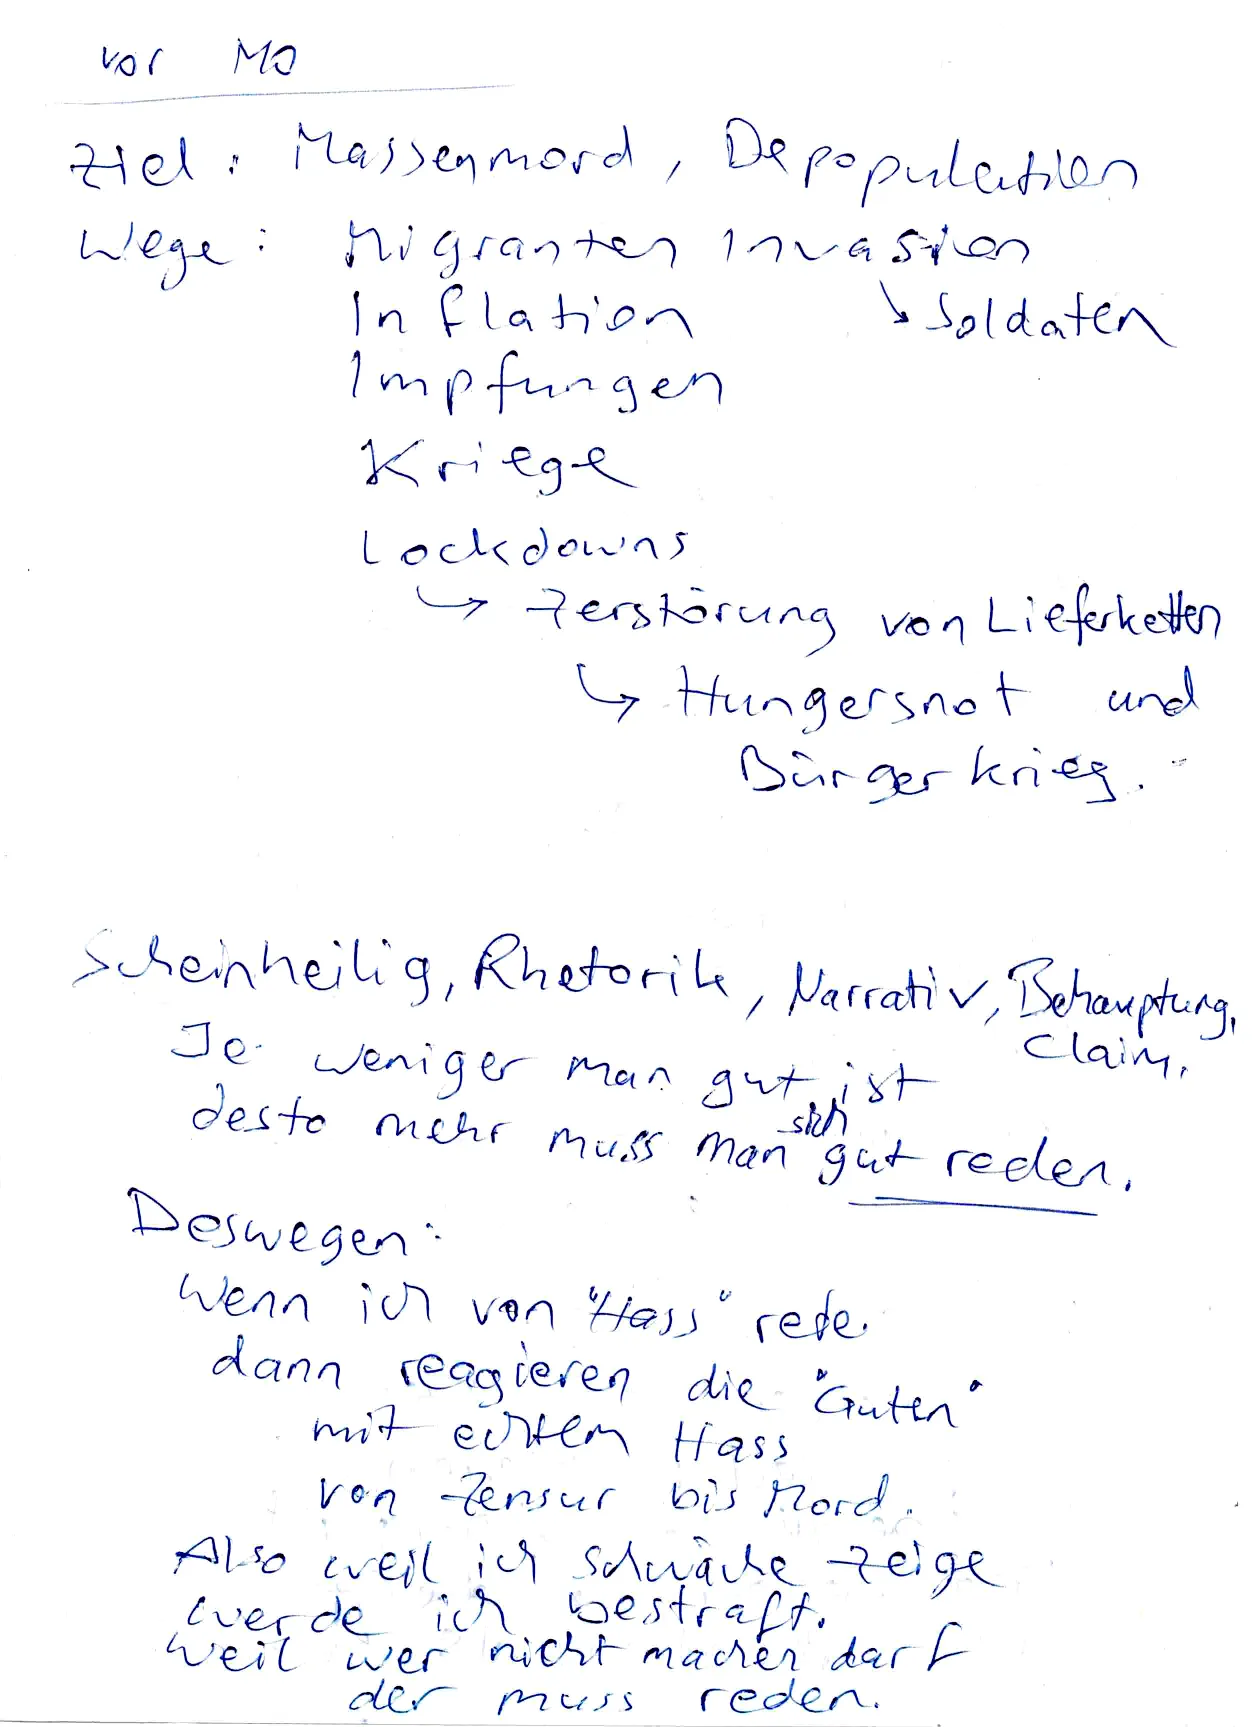 vor MO
Ziel: Massenmord, Depopulation
Wege: Migranten Invasion
Inflation ↳ Soldaten
Impfungen
Kriege
Lockdowns
↳ Zerstörung von Lieferketten
↳ Hungersnot und
Bürgerkrieg.
Scheinheilig, Rhetorik, Narrativ, Behauptung,
Claim,
Je weniger man gut ist
desto mehr muss man sich gut reden.
Deswegen:
Wenn ich von "Hass" rede
dann reagieren die "Guten"
mit echtem Hass
von Zensur bis Mord.
Also weil ich schwäche zeige
werde ich bestraft.
Weil wer nicht machen darf
der muss reden.